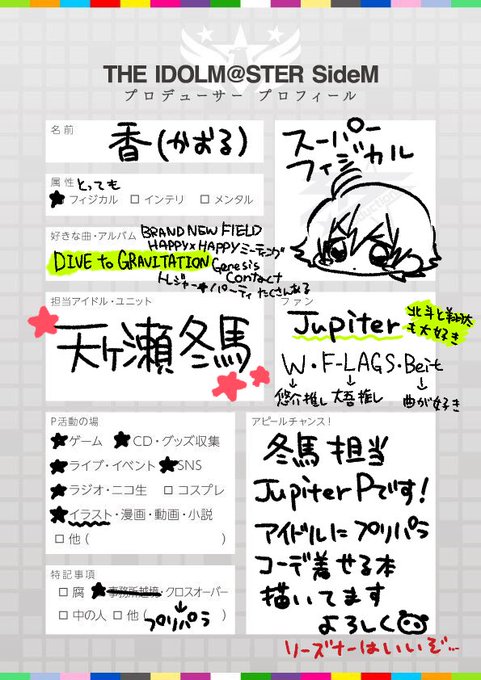 THE IDOLM@STER SideM
プロデューサー プロフィール
名前
香(かおる)
スーパー
フィジカル
属性 とっても
★フィジカル □インテリ □メンタル
好きな曲・アルバム
BRAND NEW FIELD
HAPPY×HAPPYミーティング
DIVE to GRAVITATION
Genesis
Contact
トレジャー★パーティ たくさんある
担当アイドル・ユニット
天ヶ瀬冬馬
ファン
Jupiter
北斗と翔太
も大好き
W・F-LAGS・Beit
↓ ↓ ↓
悠介推し 大吾推し 曲が好き
P活動の場
★ゲーム ★CD・グッズ収集
★ライブ・イベント ★SNS
★ラジオ・ニコ生 □コスプレ
★イラスト・漫画・動画・小説
□他( )
特記事項
□腐 ★事務所越境・クロスオーバー
□中の人 □他( )
↓
プリパラ
アピールチャンス!
冬馬担当
JupiterPです!
アイドルにプリパラ
コーデ着せる本
描いてます
よろしく
リーズナーはいいぞ…